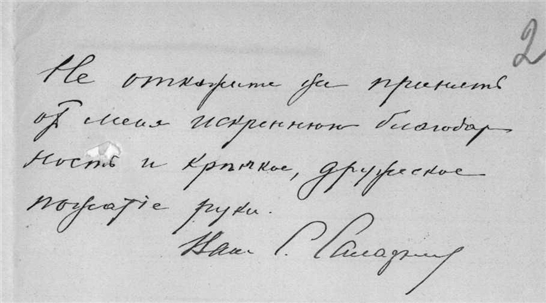 2
Не откажите же принять
отъ меня искреннюю благодар
ность и крѣпкое, дружеское
пожатіе руки.
Вашъ С.